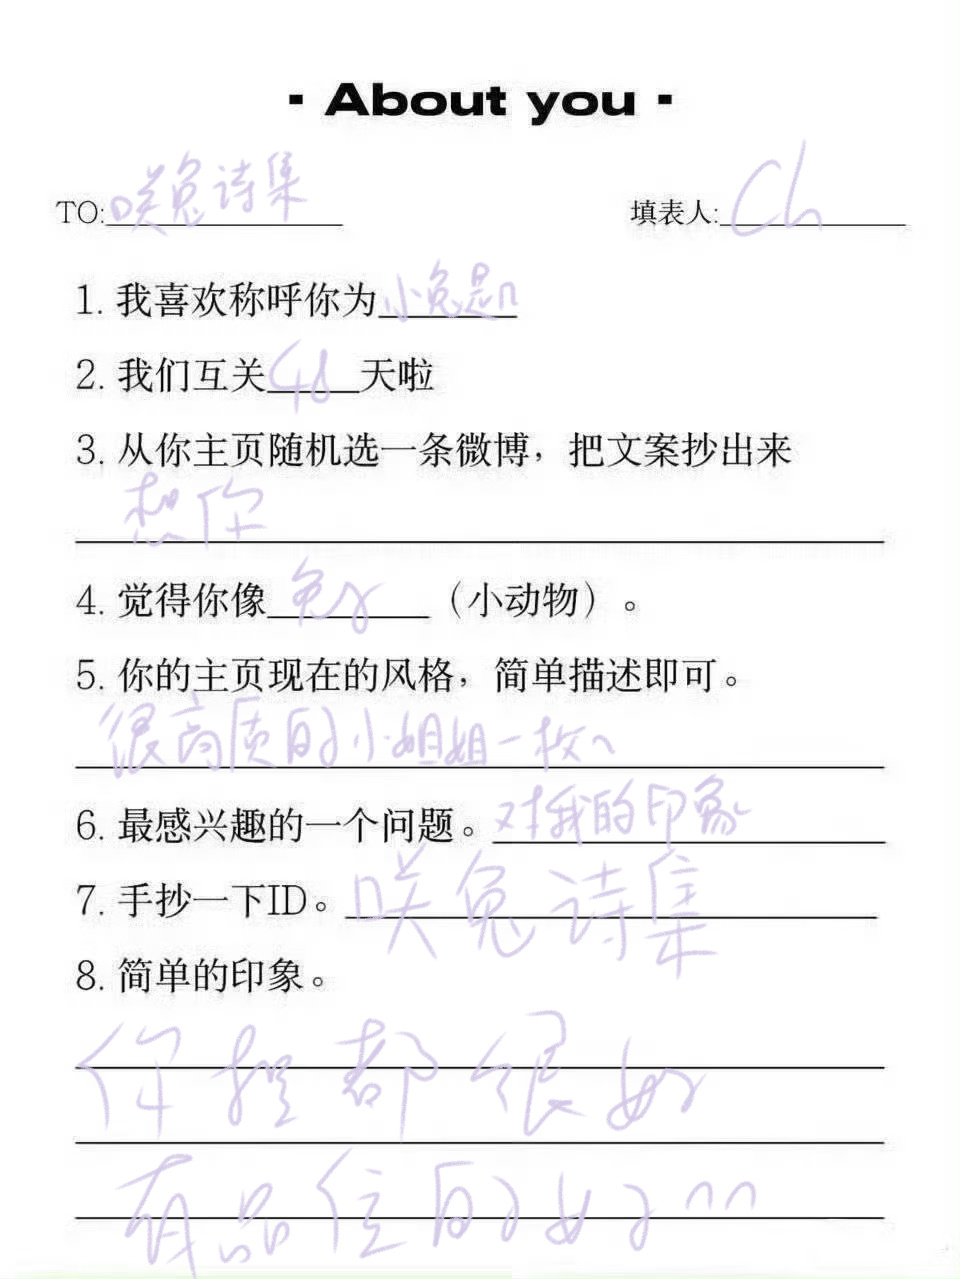 - About you -
TO: 咲兔诗集 填表人: Ch
1. 我喜欢称呼你为小兔
2. 我们互关48天啦
3. 从你主页随机选一条微博，把文案抄出来
想你
4. 觉得你像兔子（小动物）。
5. 你的主页现在的风格，简单描述即可。
很高质的小姐姐一枚
6. 最感兴趣的一个问题。对我的印象
7. 手抄一下ID。咲兔诗集
8. 简单的印象。
你都很好
有品位的女子∩∩